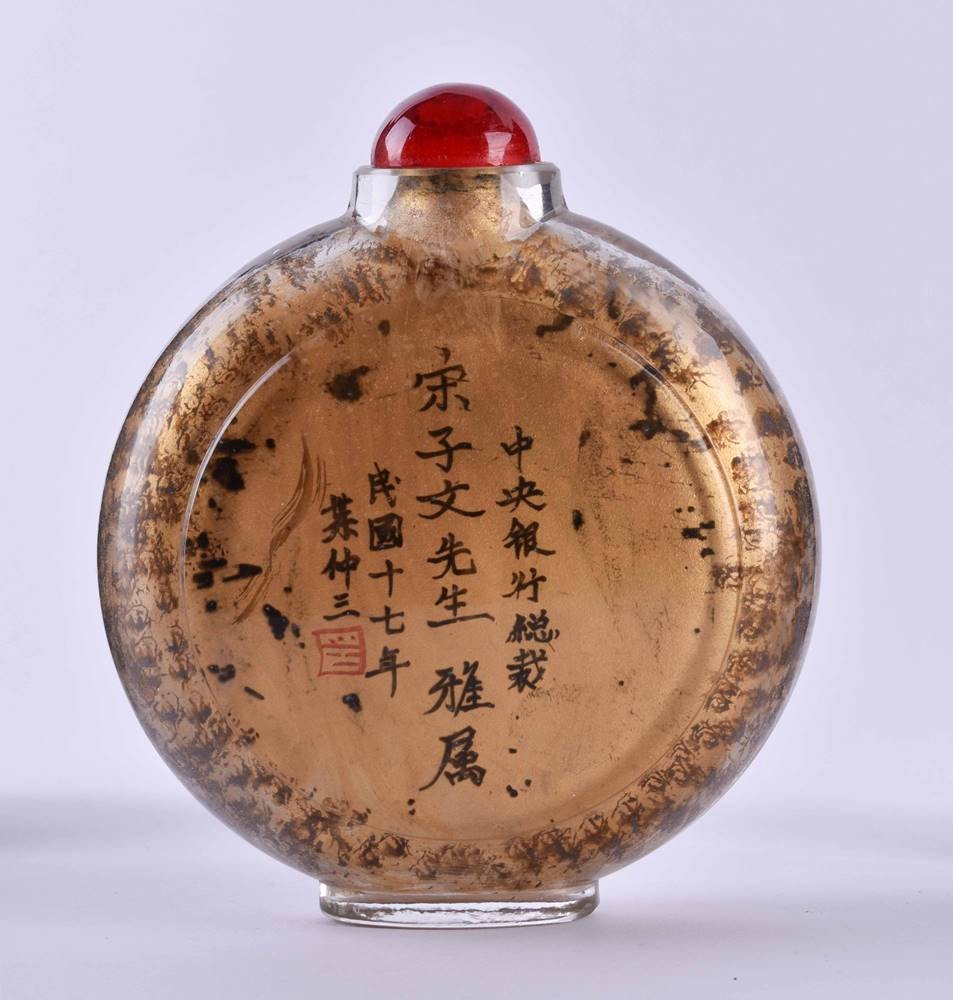 中央银行総裁
宋子文先生 雅属
民國十七年
葉仲三